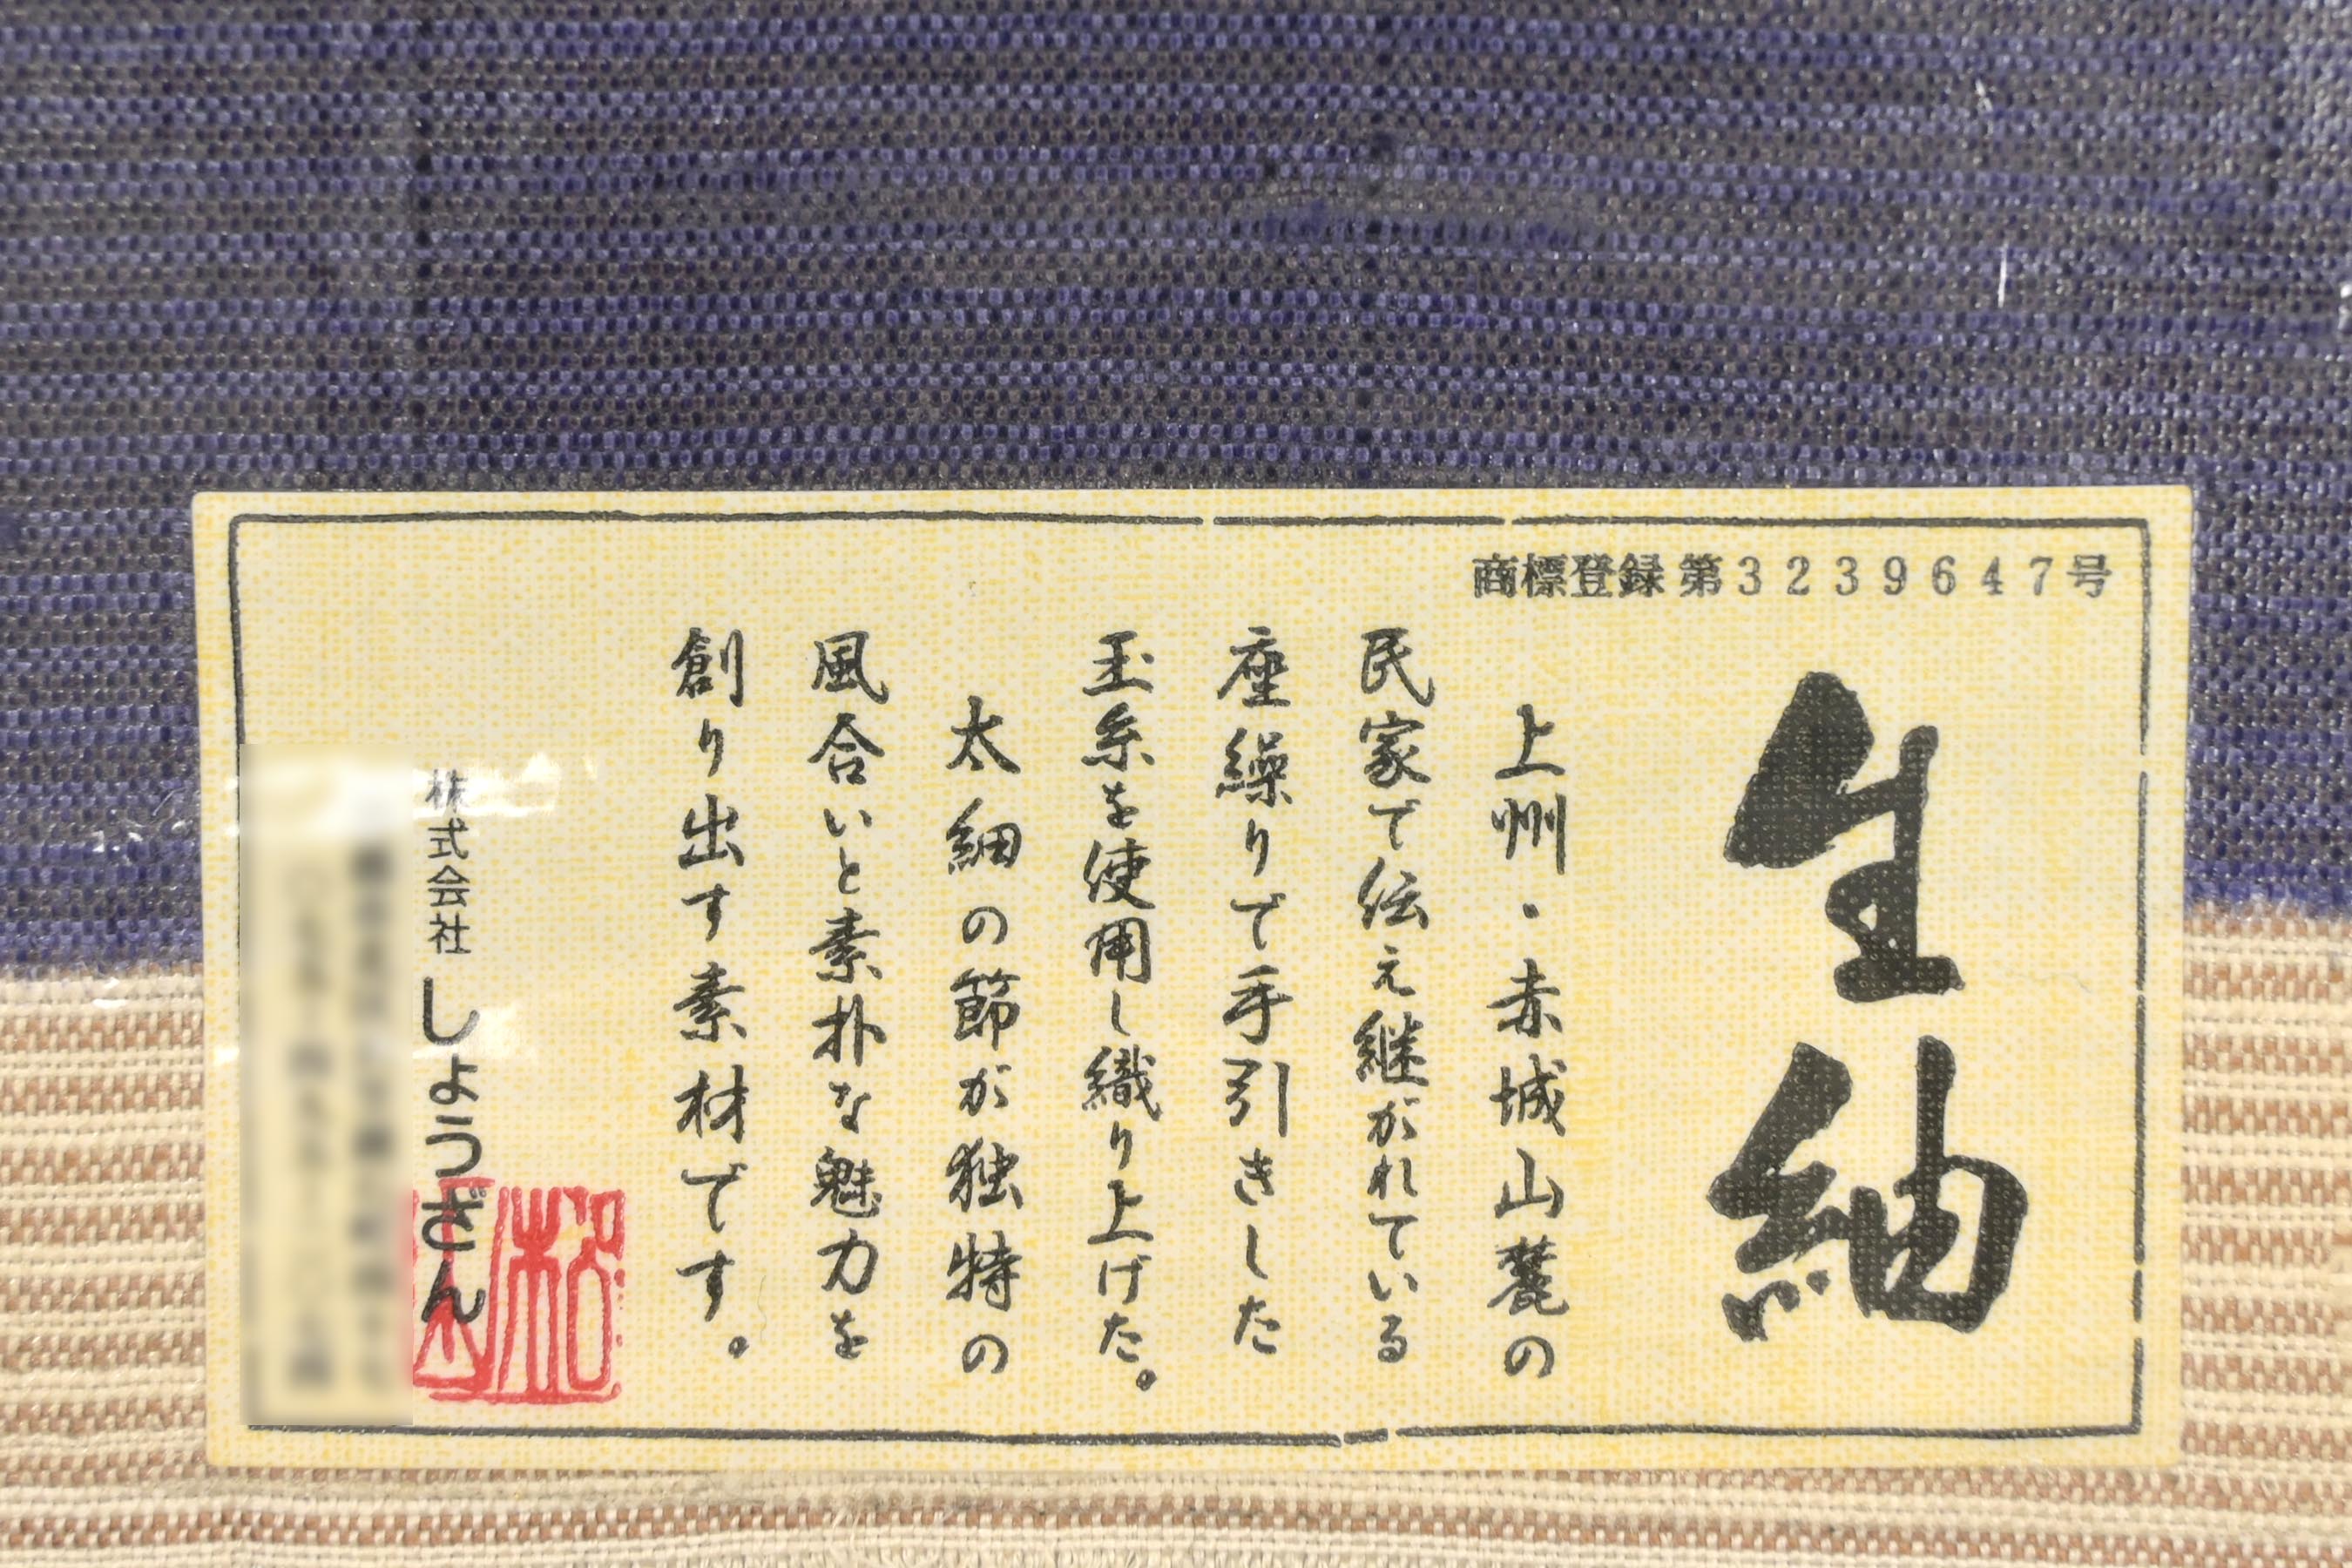 商標登録 第3239647号
生紬
上州・赤城山麓の
民家で伝え継がれている
座繰りで手引きした
玉糸を使用し織り上げた。
太細の節が独特の
風合いと素朴な魅力を
創り出す素材です。
株式会社 しょうざん
松山